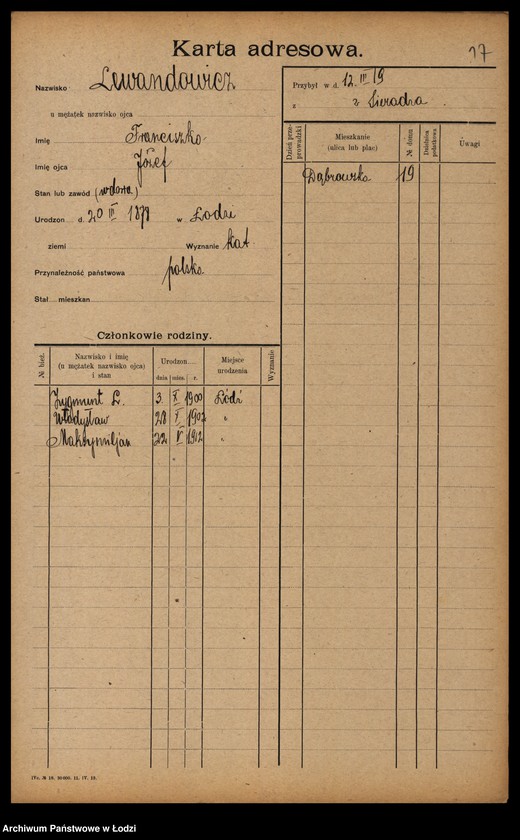 Karta adresowa.
17
Nazwisko Lewandowicz
u mężatek nazwisko ojca
Imię Franciszka
Imię ojca Józef
Stan lub zawód (wdowa)
Urodzon d. 20 III 1878 w Łodzi
ziemi Wyznanie kat.
Przynależność państwowa polska
Stał. mieszkan
Przybył w d. 12. III 19
z z Sieradza.
Dzień przeprowadzki
Mieszkanie
(ulica lub plac)
№ domu
Dzielnica
Uwagi
Dąbrowska 19
Członkowie rodziny.
№ bież.
Nazwisko i imię
(u mężatek nazwisko ojca)
i stan
Urodzon
dnia mies. r.
Miejsce
urodzenia
Wyznanie
Zygmunt L. 3 X 1900 Łódź
Władysław 28 V 1902 "
Maksymiljan 22 V 1912 "
Archiwum Państwowe w Łodzi